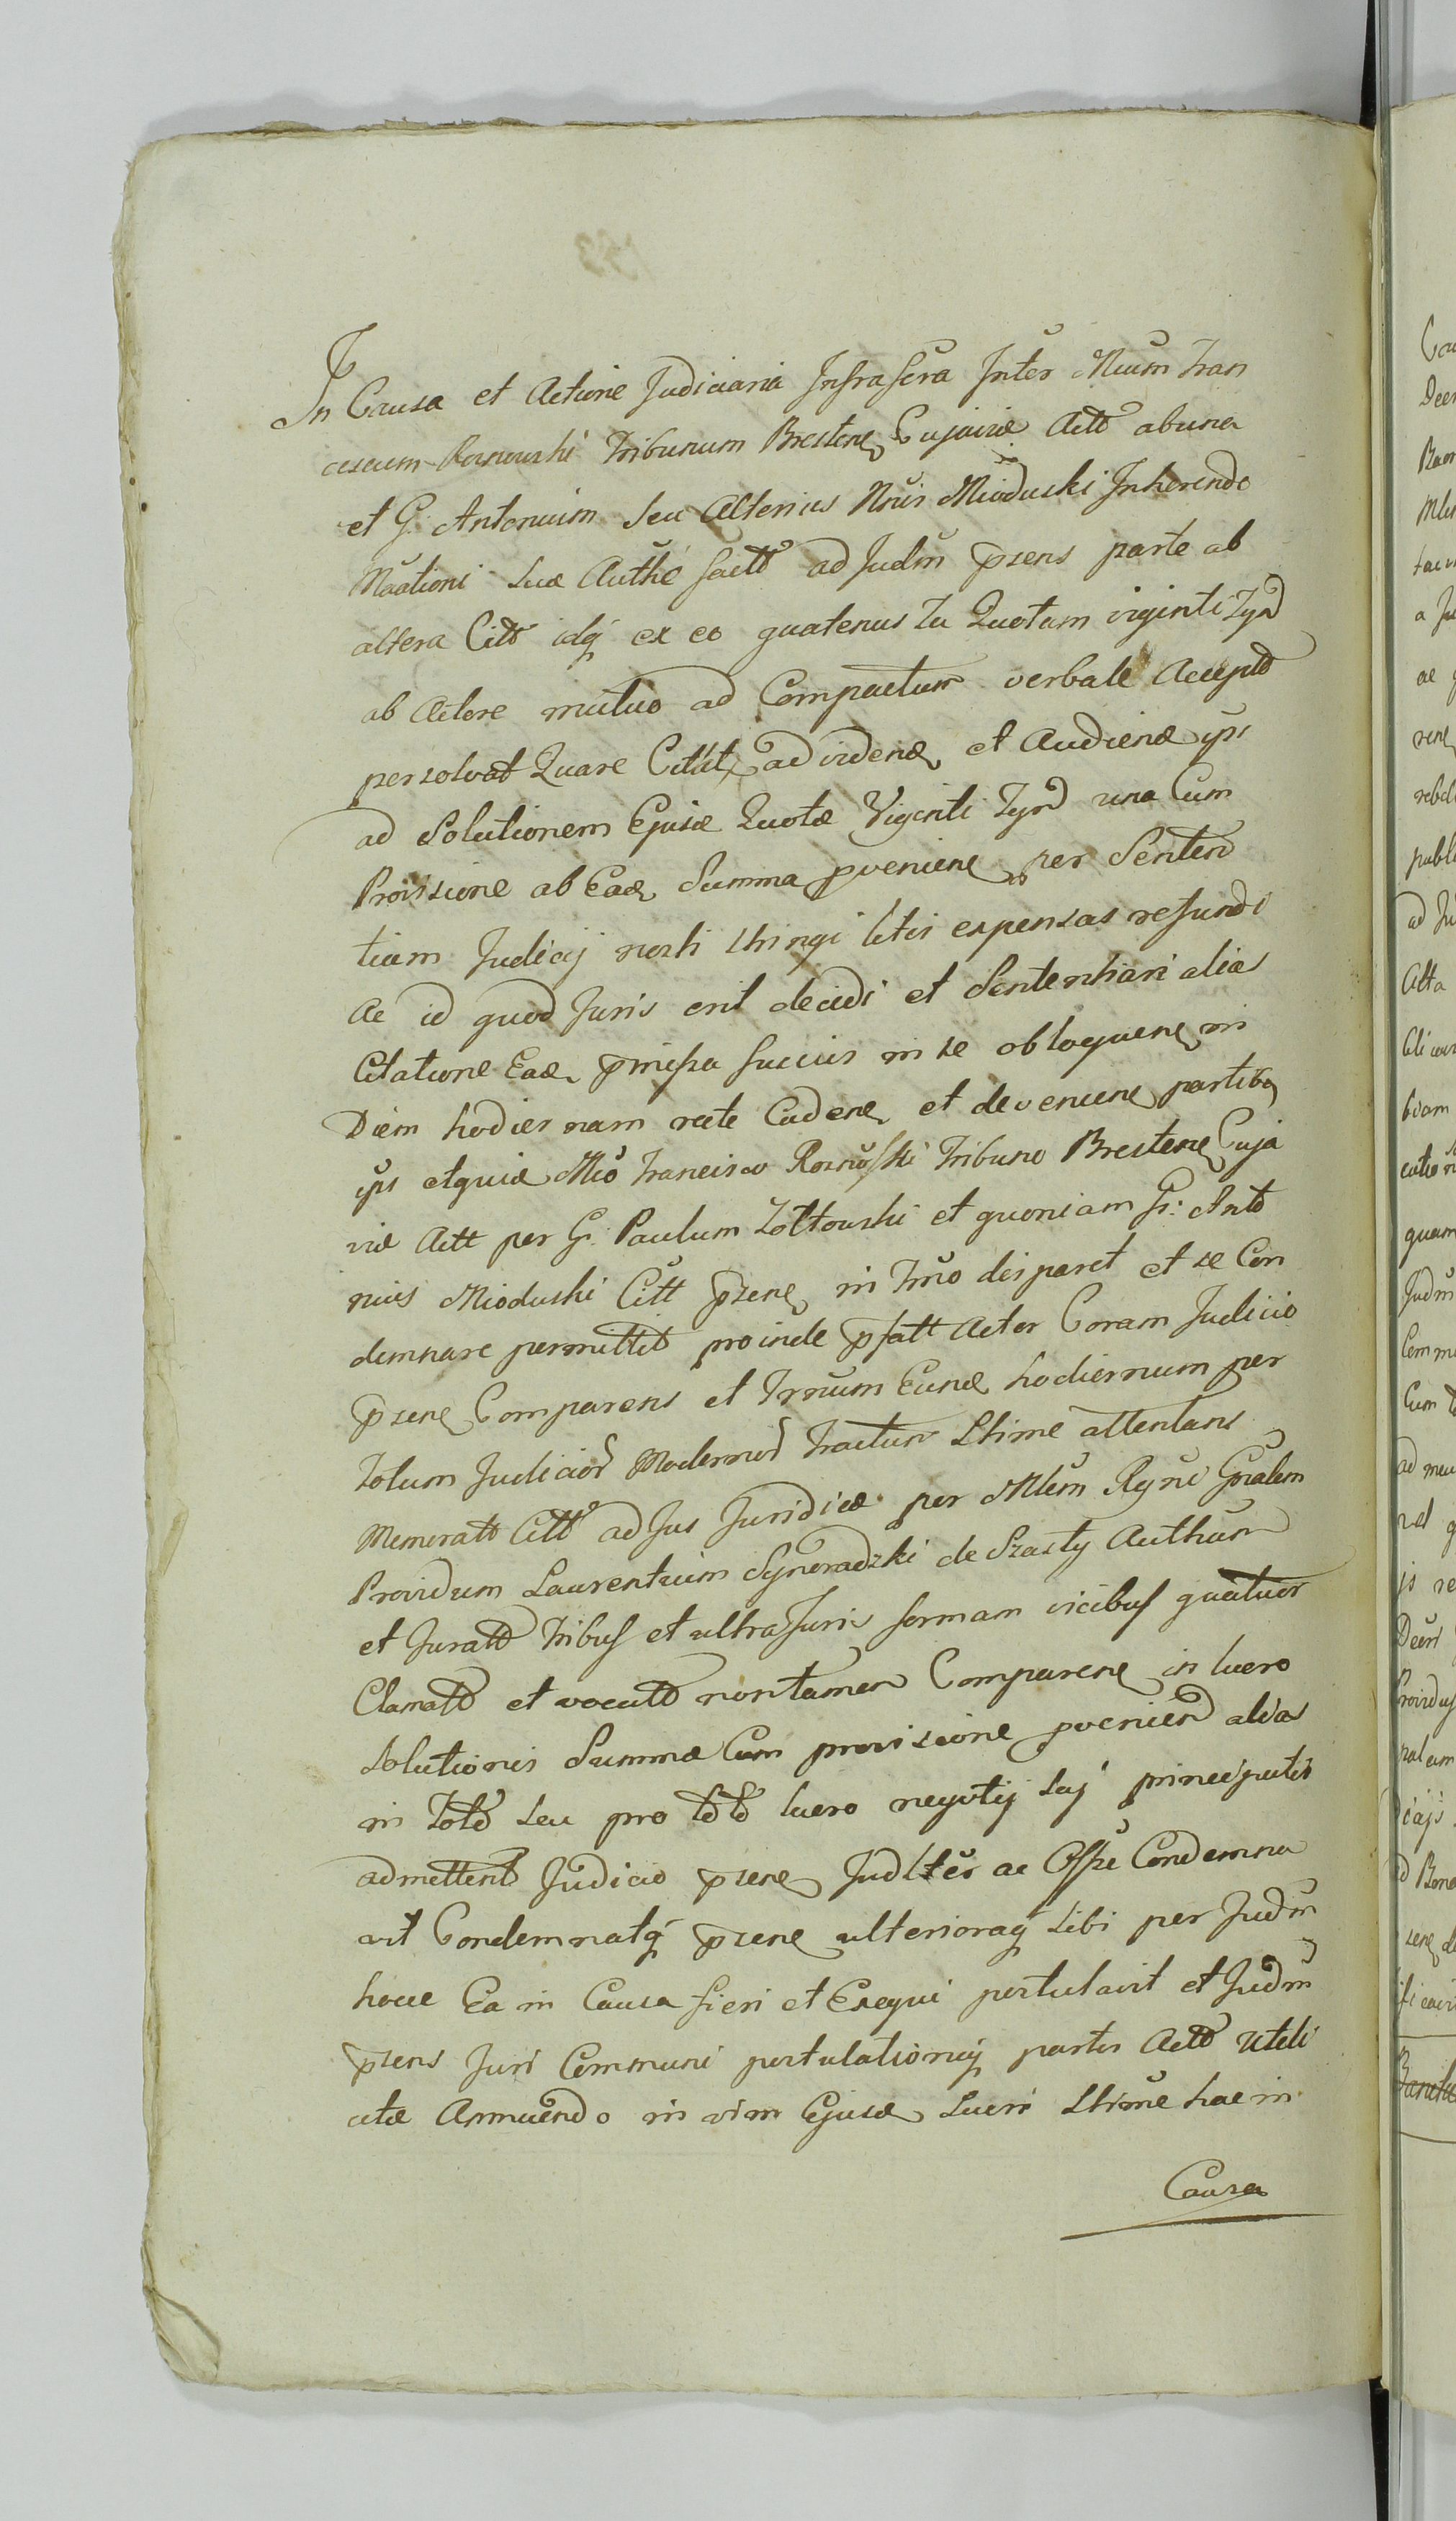 In Causa et Actione Judiciaria Infrascra Inter Mcum Fran
ciscum Roznowski Tribunum Brestenę Cujaviæ Actō ab una
et G. Antonium seu Alterius Nnis Mioduski Inherendo
Nnationi suæ Authē factō ad Judm pzens parte ab
altera Citō idq ex eo quatenus Tu Quotam viginti Tynf
ab Actore mutuo ad Compactum verbale Acceptō
persolvat Quare Citāt ad vidend et Audiend ips
ad Solutionem Ejusd Quotæ Viginti Tynf una Cum
Provisione ab Ead Summa pveniene per Senten
tiam Judicij nostri stringi litis expensas refundi
ac id quod Juris erit decidi et Sententiari alias
Citatione Ead pmissa fusius in se obloquene in
Diem hodiernam recte Cadene et deveniene partibg
ips etquid Mco Francisco Roznowski Tribuno Brestene Cuja
viæ Actt per G. Paulum Zołtowski et quoniam G: Antō
nius Mioduski Citt pzene in Trno disparet et se Con
demnare permittit proinde pfatt Actor Coram Judicio
pzene Comparens et Trnum Eund hodiernum per
Totum Judicior Modernor Tractum Lhime attentans
Memoratt Cittō ad Jus Juridice per Mlem Rgni Gnralem
Providum Laurentium Synoradzki de Szasty Authum
et Juratō Tribus et ultra Juris formam vicibus quatuor
Clamatō et vocatō nontamen Comparene in lucro
solutionis Summæ Cum provisione pvenien alias
in Totō seu pro tōtō lucro negotij suj principalis
admittenō Judicio pzene Judlter ac Offse Condemna
vit Condemnatq pzene ulterioraq sibi per Judm
hocce Ea in Causa fieri et Exequi postulavit et Judm
pzens Juri Communi postulationiq partis Actō Utili
atæ Annuendo in vim Ejusd Lucri Lhime hac in
Causa